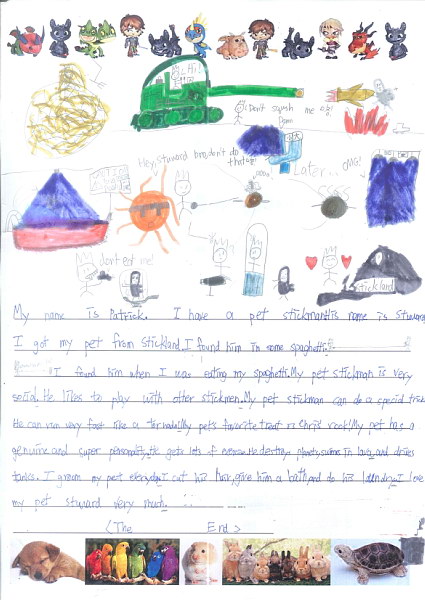 Hi!
Don't squash
me bib!
Damn
Hey, stuward bro, don't do
that!
oooo!
Later... OMG!
don't eat me!
Stickland
My name is Patrick. I have a pet stickman. His name is Stuward
I got my pet from Stickland. I found him in some spaghetti.
I found him when I was eating my spaghetti. My pet stickman is very
social. He likes to play with other stickmen. My pet stickman can do a special trick.
He can run very fast like a tornado. My pet's favorite treat is Chris rock! My pet has a
genuine and super personality. He gets lots of exercise. He destroy planets, swims in lava, and drives
tanks. I groom my pet everyday. I cut his hair, give him a bath and do his laundry. I love
my pet stuward very much.
<The End>